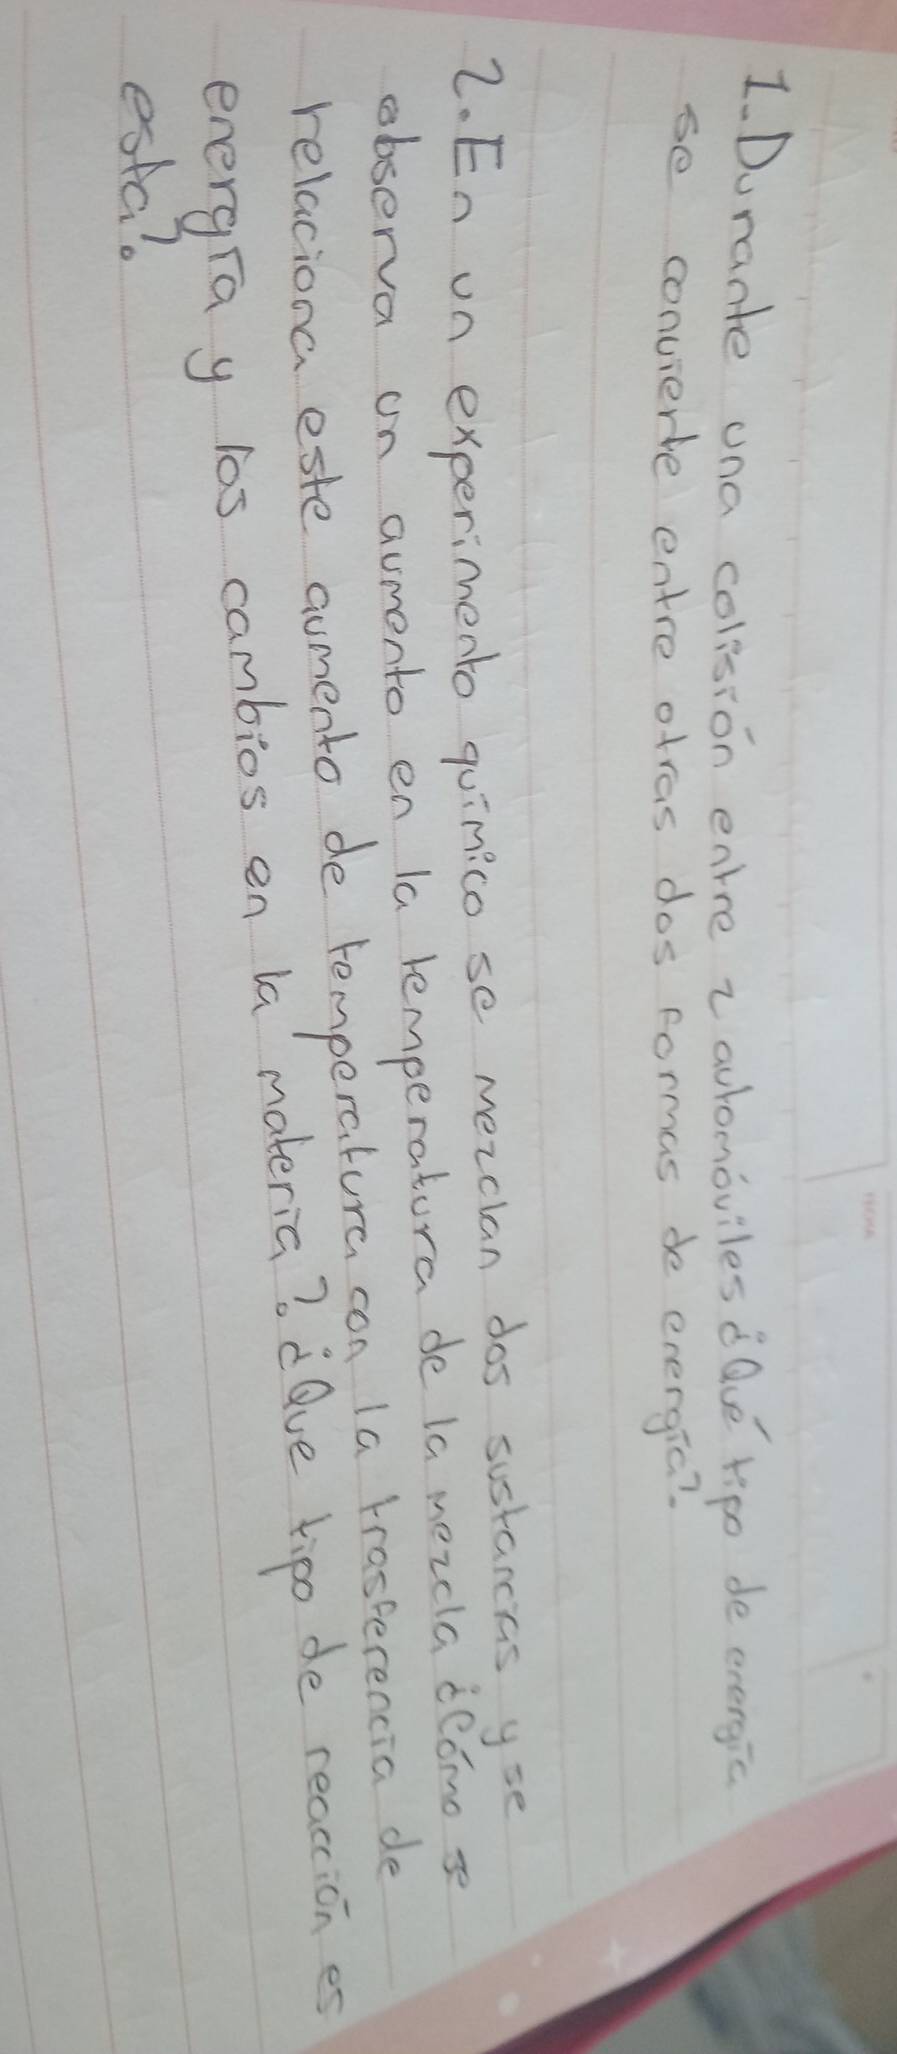 FECHA
1-Durante una colisión entre 2 automóviles ¿Qué tipo de energía
se convierte entre otras dos formas de energía?.
2. En un experimento químico se mezclan dos sustancias y se
observa un aumento en la temperatura de la mezcla ¿Cómo se
relaciona este aumento de temperatura con la trasferencia de
energía y los cambios en la materia? ¿Que tipo de reacción es
esta?